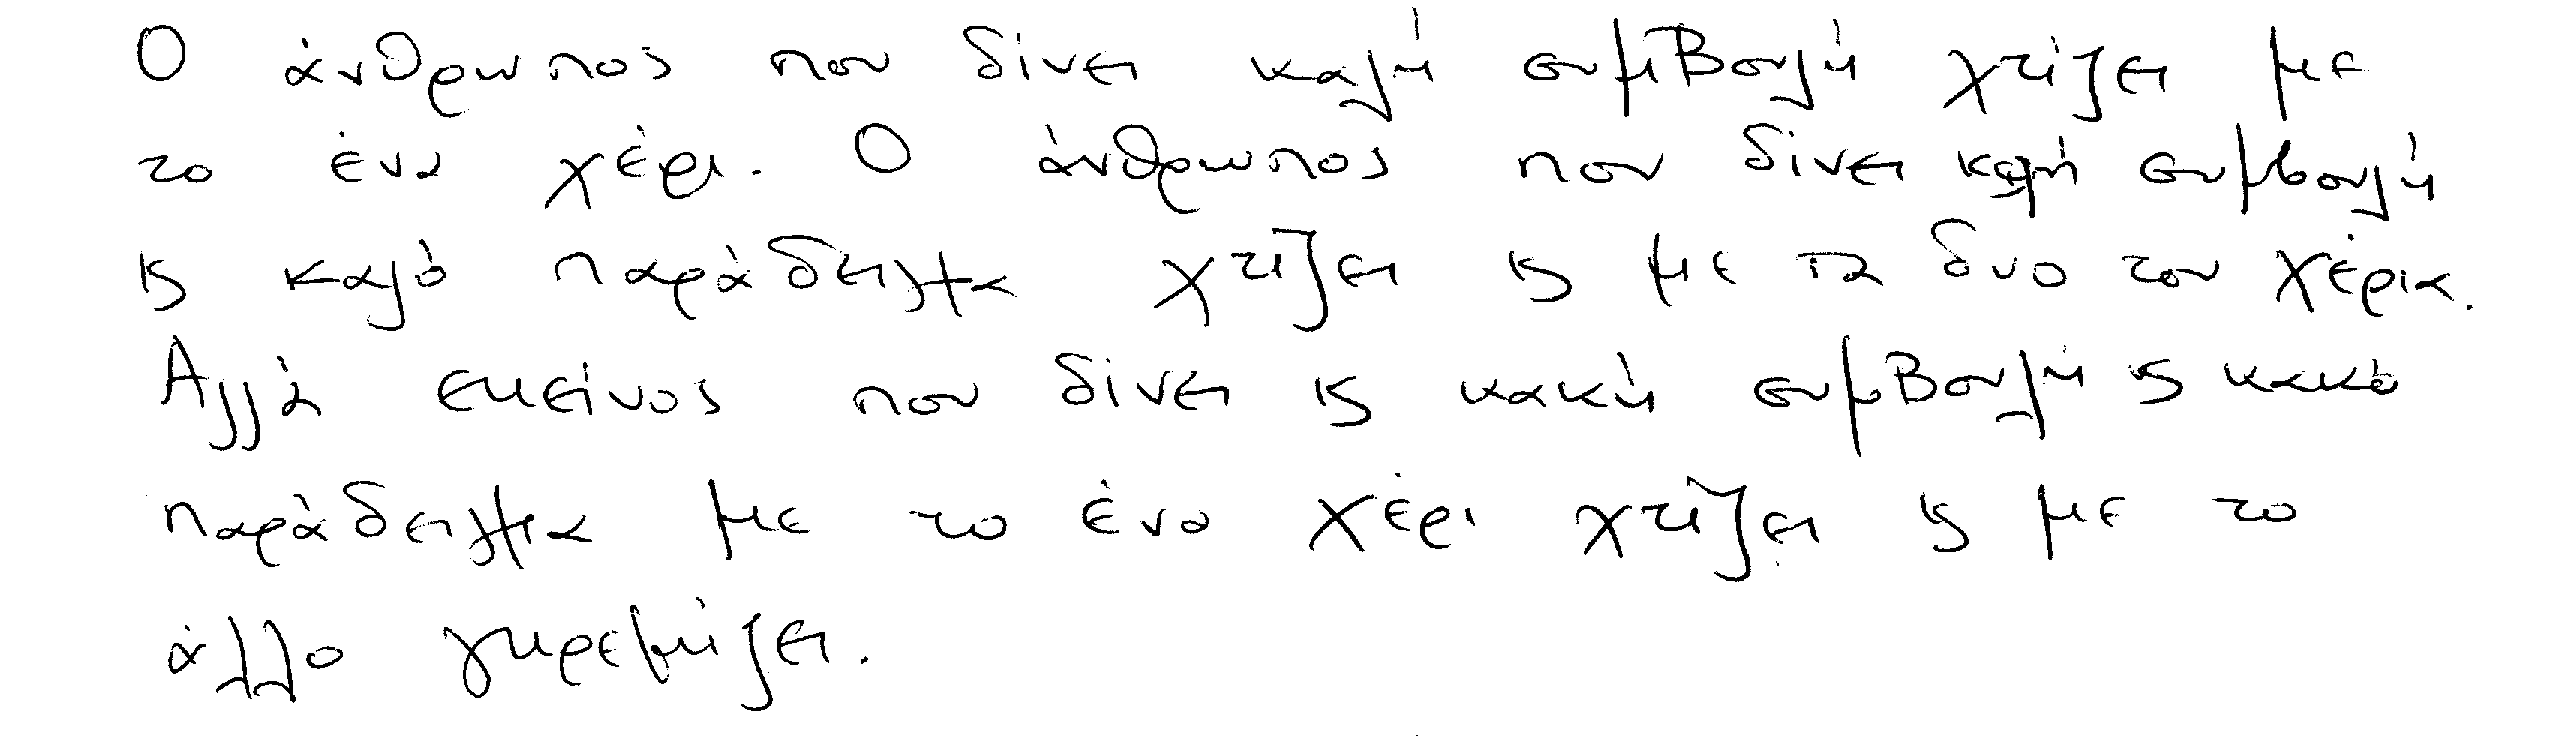 Ο άνθρωπος που δίνει καλή συμβουλή χτίζει με
το ένα χέρι. Ο άνθρωπος που δίνει καλή συμβουλή
ϗ καλό παράδειγμα χτίζει ϗ με τα δυο του χέρια.
Αλλά εκείνος που δίνει ϗ κακή συμβουλή ϗ κακό
παράδειγμα με το ένα χέρι χτίζει ϗ με το
άλλο γκρεμίζει.